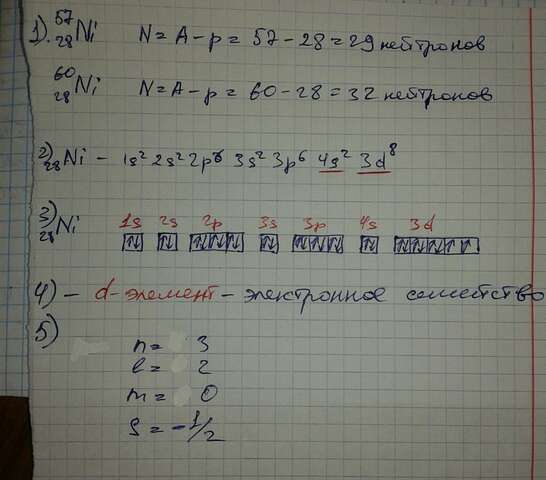 1). ⁵⁷₂₈Ni N = A – p = 57 – 28 = 29 нейтронов
⁶⁰₂₈Ni N = A – p = 60 – 28 = 32 нейтронов
2) ₂₈Ni – 1s² 2s² 2p⁶ 3s² 3p⁶ 4s² 3d⁸
3) ₂₈Ni 1s 2s 2p 3s 3p 4s 3d
4) – d-элемент – электронное семейство
5)
n = 3
l = 2
m = 0
S = –1/2